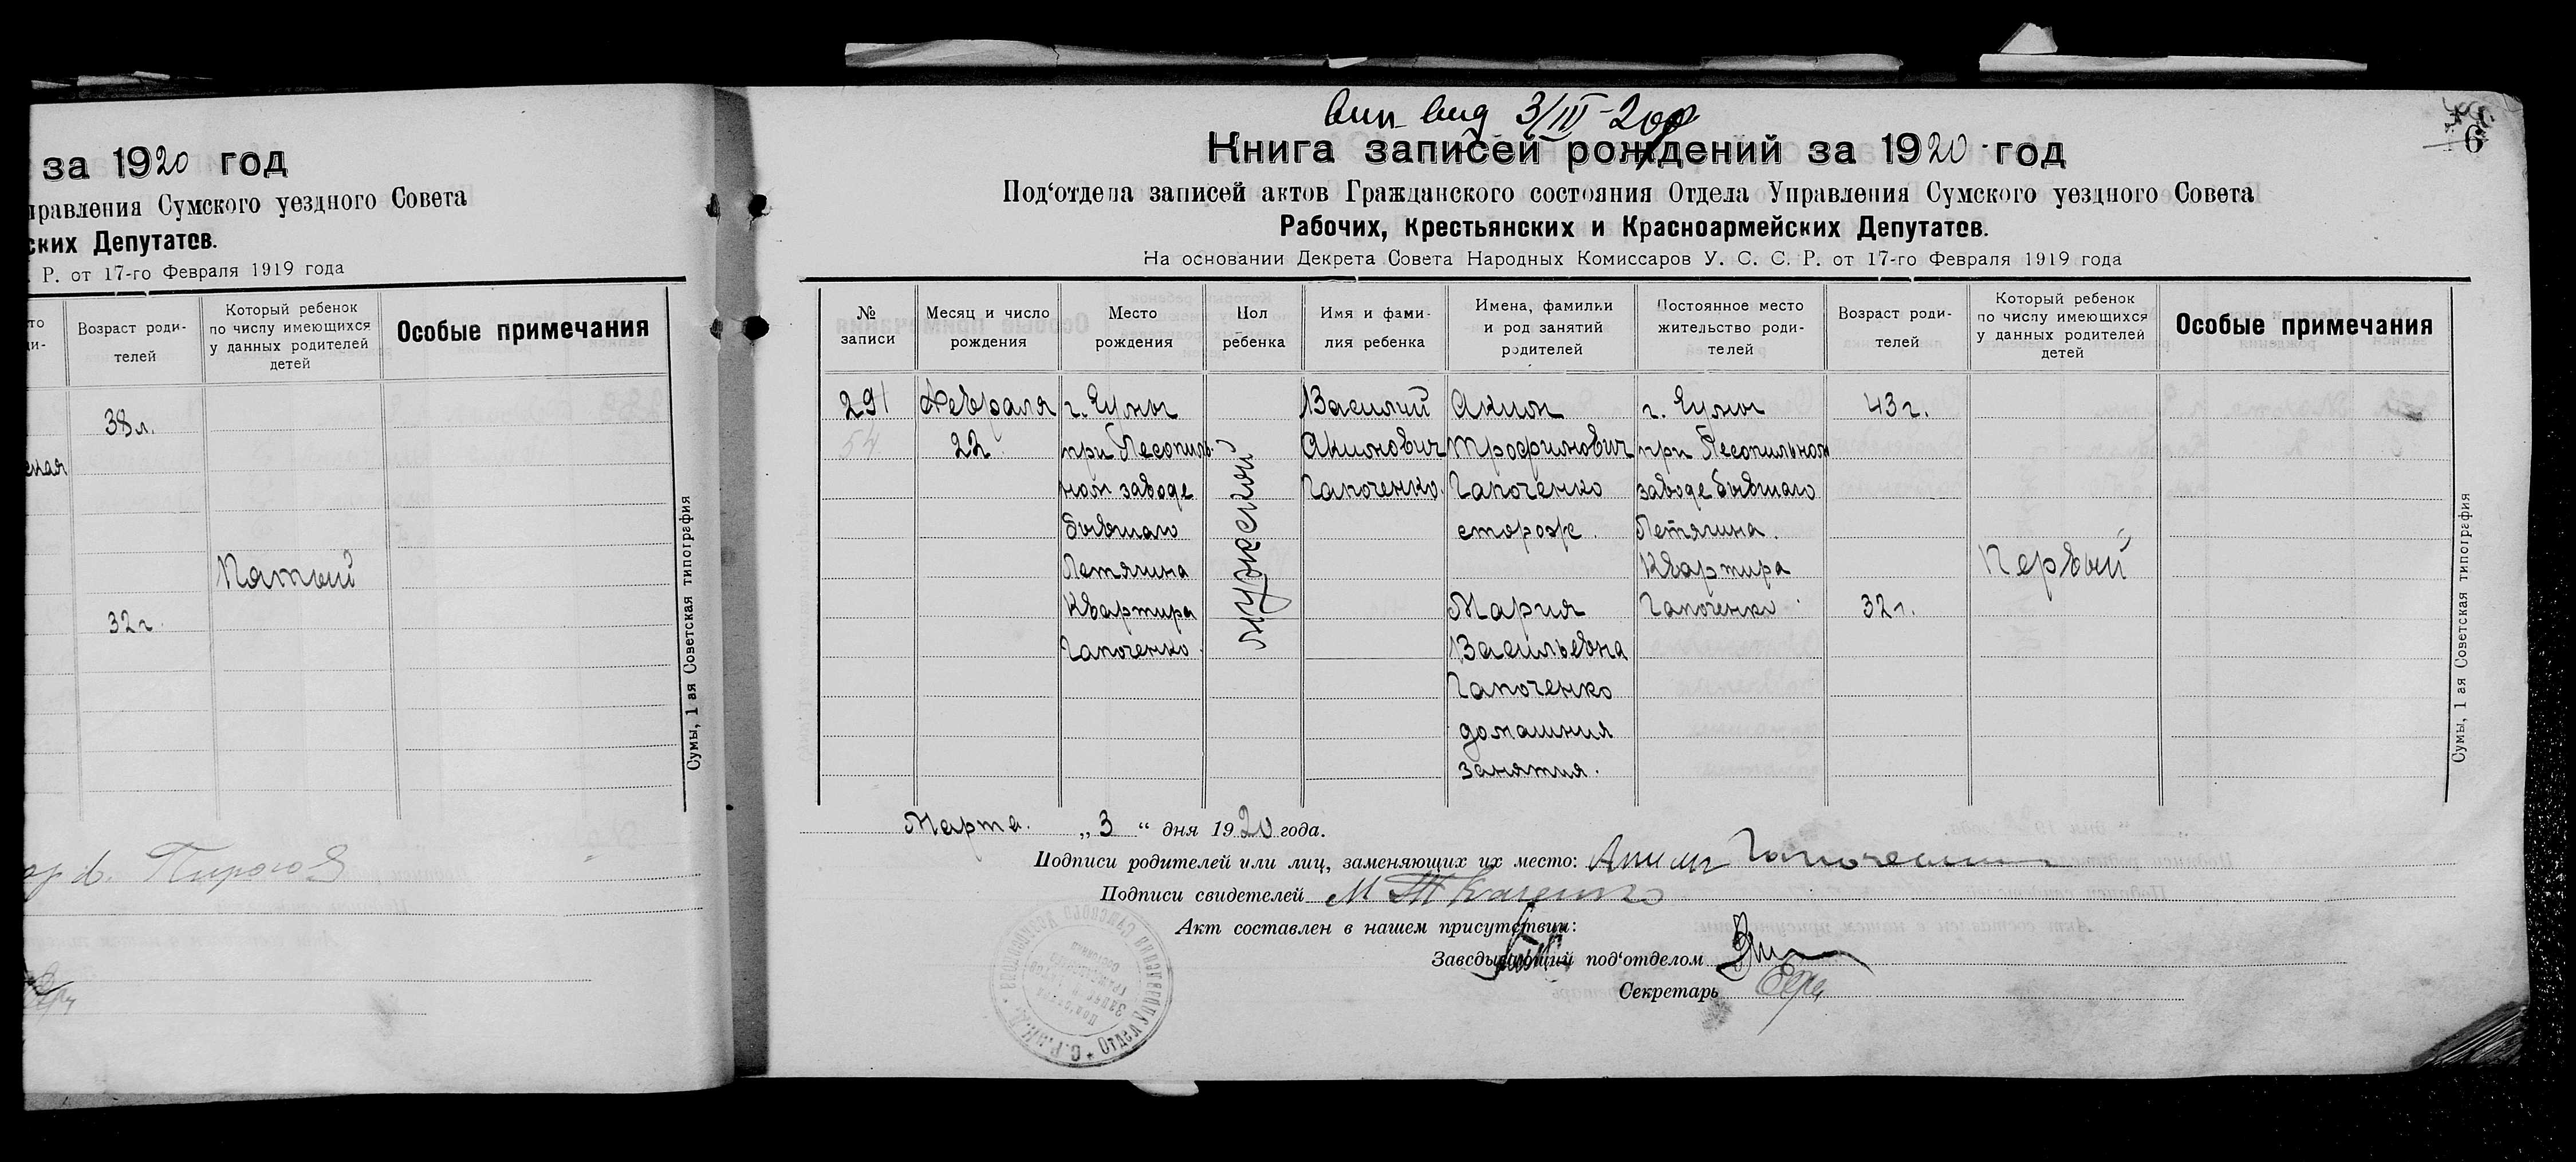 за 1920 год
правления Сумского уездного Совета
ских Депутатов.
Р. от 17-го Февраля 1919 года
Возраст роди-
телей
Который ребенок
по числу имеющихся
у данных родителей
детей
Особые примечания
38 л.
Пятый
32 г
Пирогов
Сумы, 1 ая Советская типография
3/III-20
6
Книга записей рождений за 1920 год
Под‘отдела записей актов Гражданского состояния Отдела Управления Сумского уездного Совета
Рабочих, Крестьянских и Красноармейских Депутатов.
На основании Декрета Совета Народных Комиссаров У. С. С. Р. от 17-го Февраля 1919 года
№
записи
Месяц и число
рождения
Место
рождения
Пол
ребенка
Имя и фами-
лия ребенка
Имена, фамилии
и род занятий
родителей
Постоянное место
жительство роди-
телей
Возраст роди-
телей
Который ребенок
по числу имеющихся
у данных родителей
детей
Особые примечания
291
54
Февраля
22
г. Сумы
при Лесопиль-
ном заводе
бывшаго
Летягина
Квартира
Гапоченко
мужеский
Василий
Акимович
Гапоченко.
Аким
Трофимович
Гапоченко
сторож.
Мария
Васильевна
Гапоченко
домашния
занятия.
г. Сумы
при Лесопильном
заводе бывшаго
Летягина.
Квартира
Гапоченко
43 г.
32 г.
Первый
Сумы, 1 ая Советская типография
Марта. „3“ дня 1920 года.
Подписи родителей или лиц, заменяющих их место: Аким Гапоченко
Подписи свидетелей М Ткаченко
Акт составлен в нашем присутствии:
Заведывающий под‘отделом
Секретарь